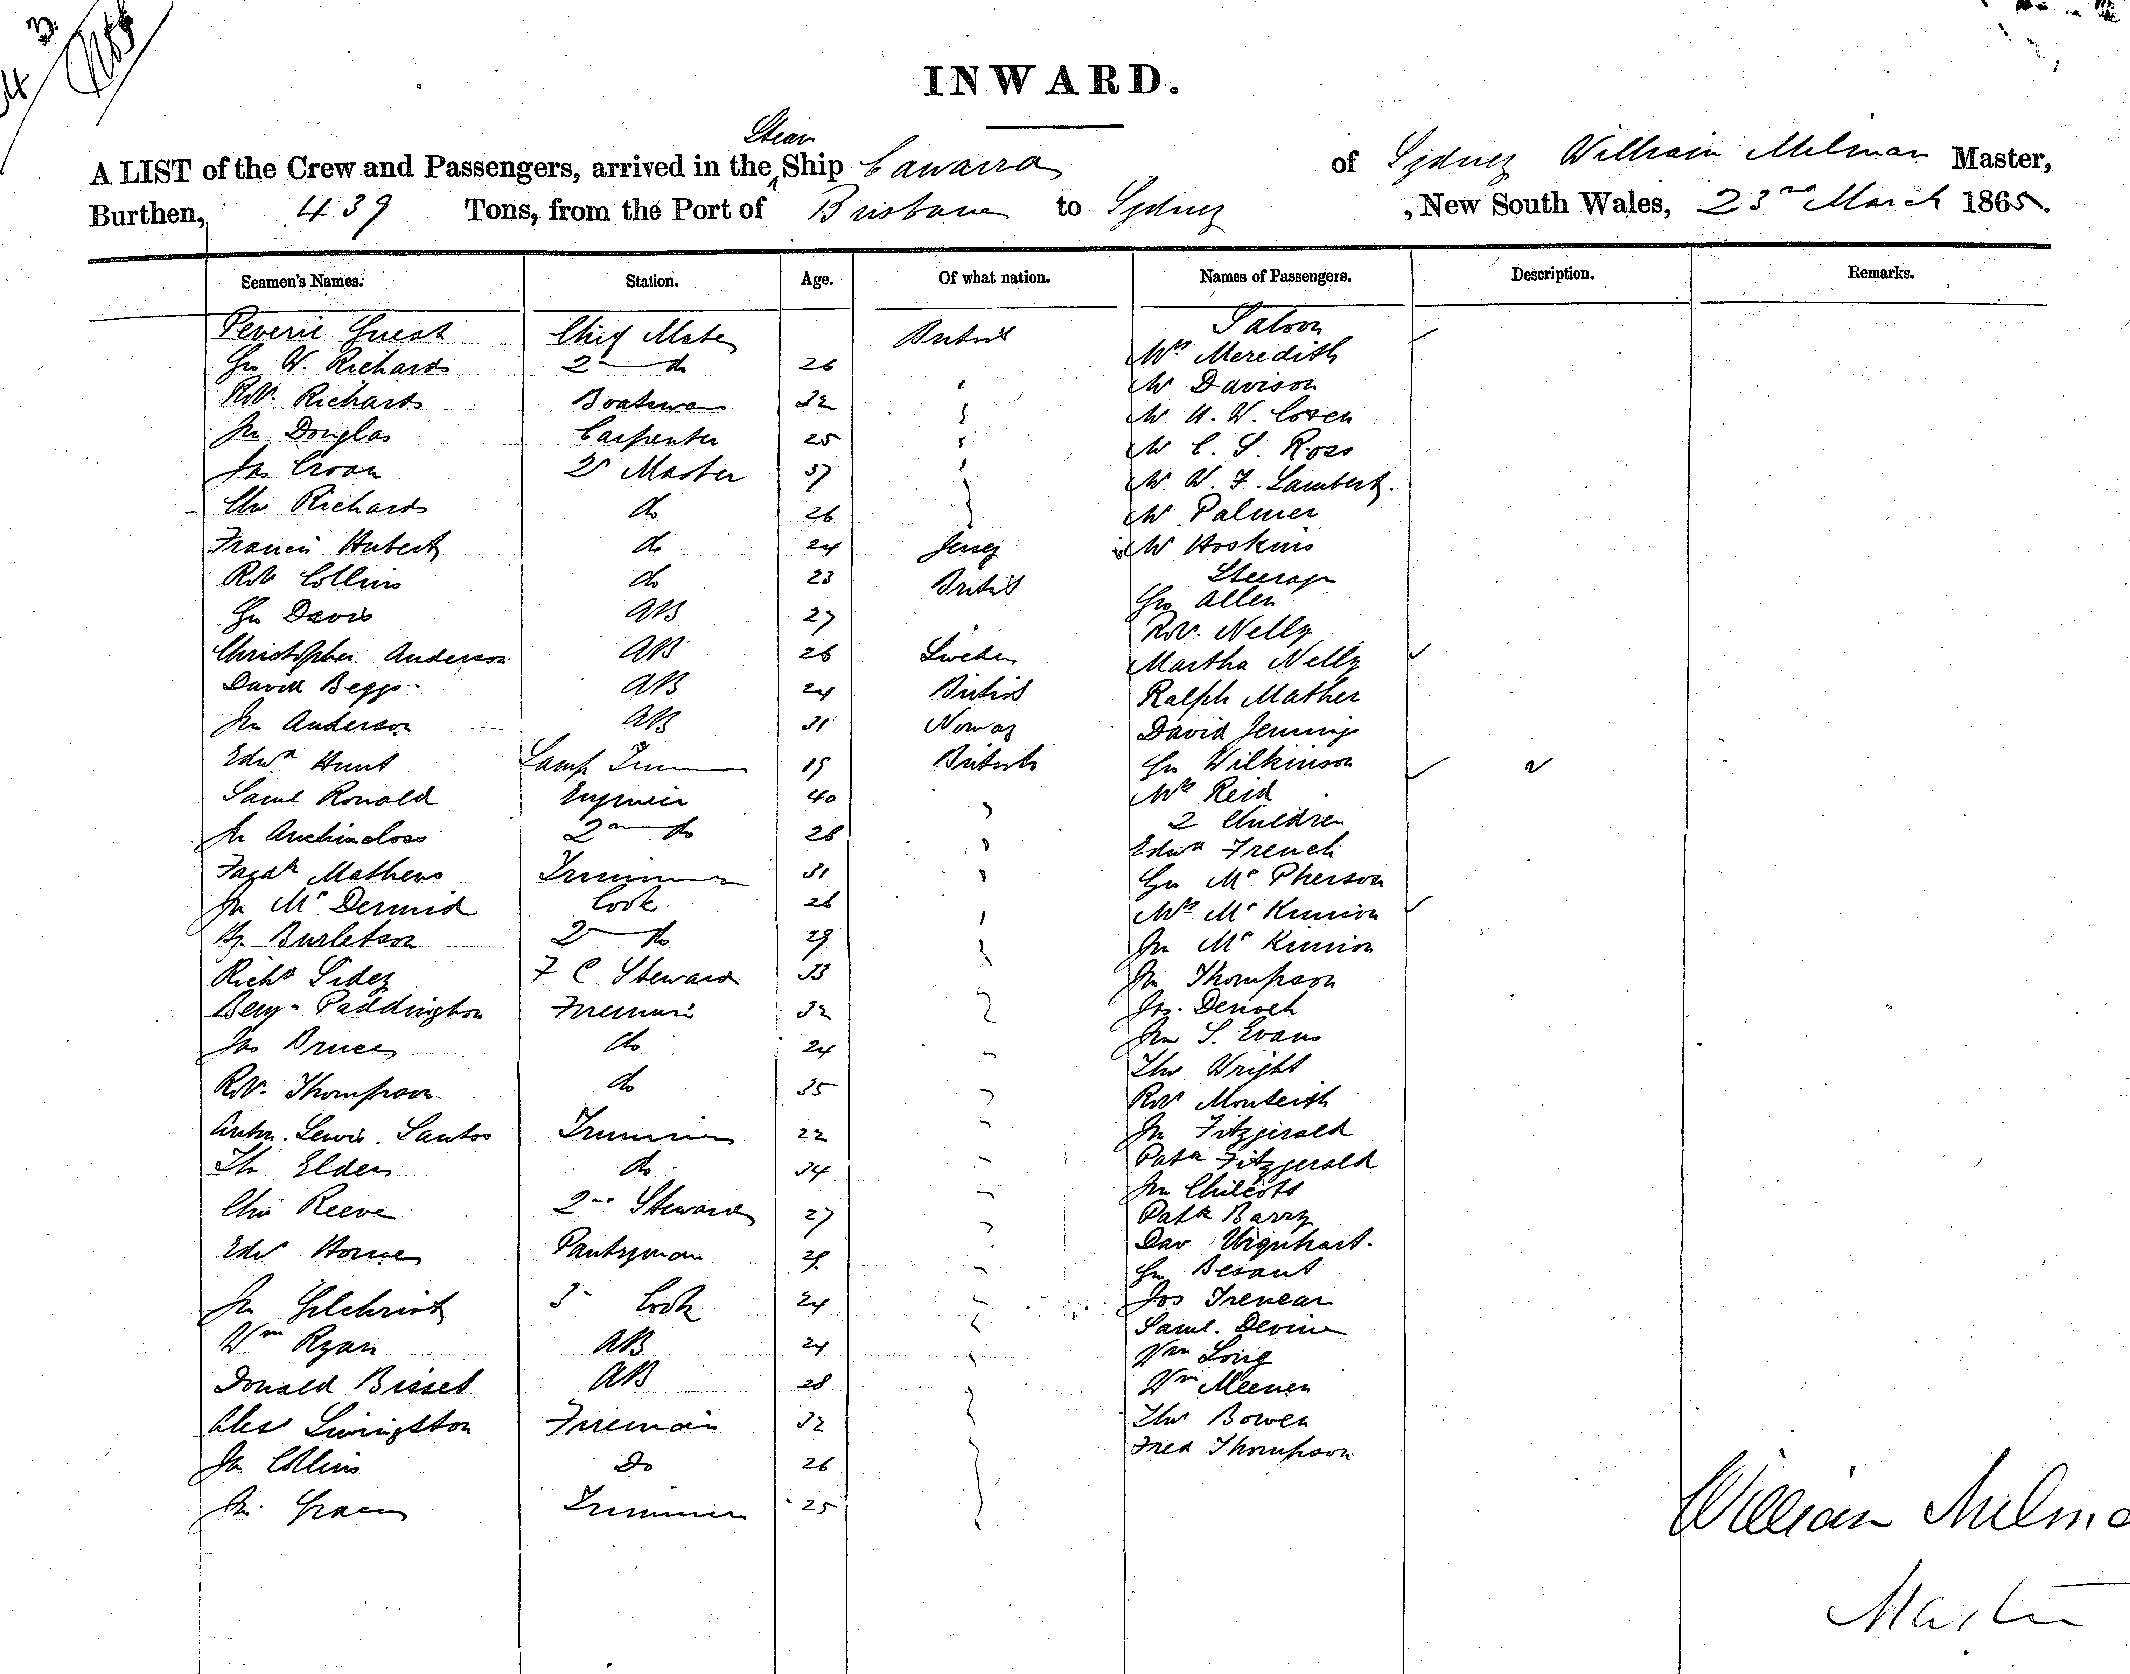 INWARD.
Steam
A LIST of the Crew and Passengers, arrived in the ^ Ship Cawarra of Sydney William Milman Master,
Burthen, 439 Tons, from the Port of Brisbane to Sydney , New South Wales, 23rd March 1865.
Seamen's Names. Station. Age. Of what nation. Names of Passengers. Description. Remarks.
Peveril Guest Chief Mate British Saloon
Geo W. Richards 2nd do 26 Mrs Meredith
Robt. Richards Boatswn 32 " Mr Davison
Jno Douglas Carpenter 25 " Mr
Jas Croan Qr Master 37 " Mr C. S. Ross
Chs Richards do 26 " Mr W. F. Lambert.
Francis Hubert do 24 Jersey Mr Palmer
Robt Collins do 23 British Mr Hoskins
Geo Davis AB 27 Steerage
Christopher Anderson AB 26 Sweden Geo Allen
David Beggs AB 24 British Robt. Nelly
Jno Anderson AB 31 Norway Martha Nelly
Edwd Hunt Lamp Trimmer 19 British Ralph Mather
Saml Ronald Engineer 40 " David Jennings
Jno Auchincloss 2nd do 28 " Geo Wilkinson
Mathews Trimmer 31 " Mrs Reid
Jno McDermid Cook 26 " 2 Children
Burletson 2nd do 29 " Edwd French
Richd Sidey F C Steward 33 " Geo McPherson
Benjn Paddington Fireman 32 " Mrs McKinnion
Jas Bruce do 24 " Jno McKinnion
Robt. Thompson do 35 " Jno Thompson
Antn. Lewis Santos Trimmer 22 " Jas.
Th Elder do 34 " Jno S. Evans
Chs Reeve 2nd Steward 27 " Thos Wright
Edwd Horne Pantryman 29 " Robt Monteith
Jno Gilchrist 3rd Cook 24 " Jno Fitzgerald
Wm Ryan AB 24 " Patk Fitzgerald
Donald Bisset AB 28 " Jno Chilcott
Alex Livingston Fireman 32 " Patk Barry
Jno Collins Do 26 " Dav Urquhart.
Jno Green Trimmer 25 " Geo Besant
Jos Trenear
Saml. Devine
Wm Long
Wm Meenen
Thos Bowen
Fred Thompson
William Milman
Master